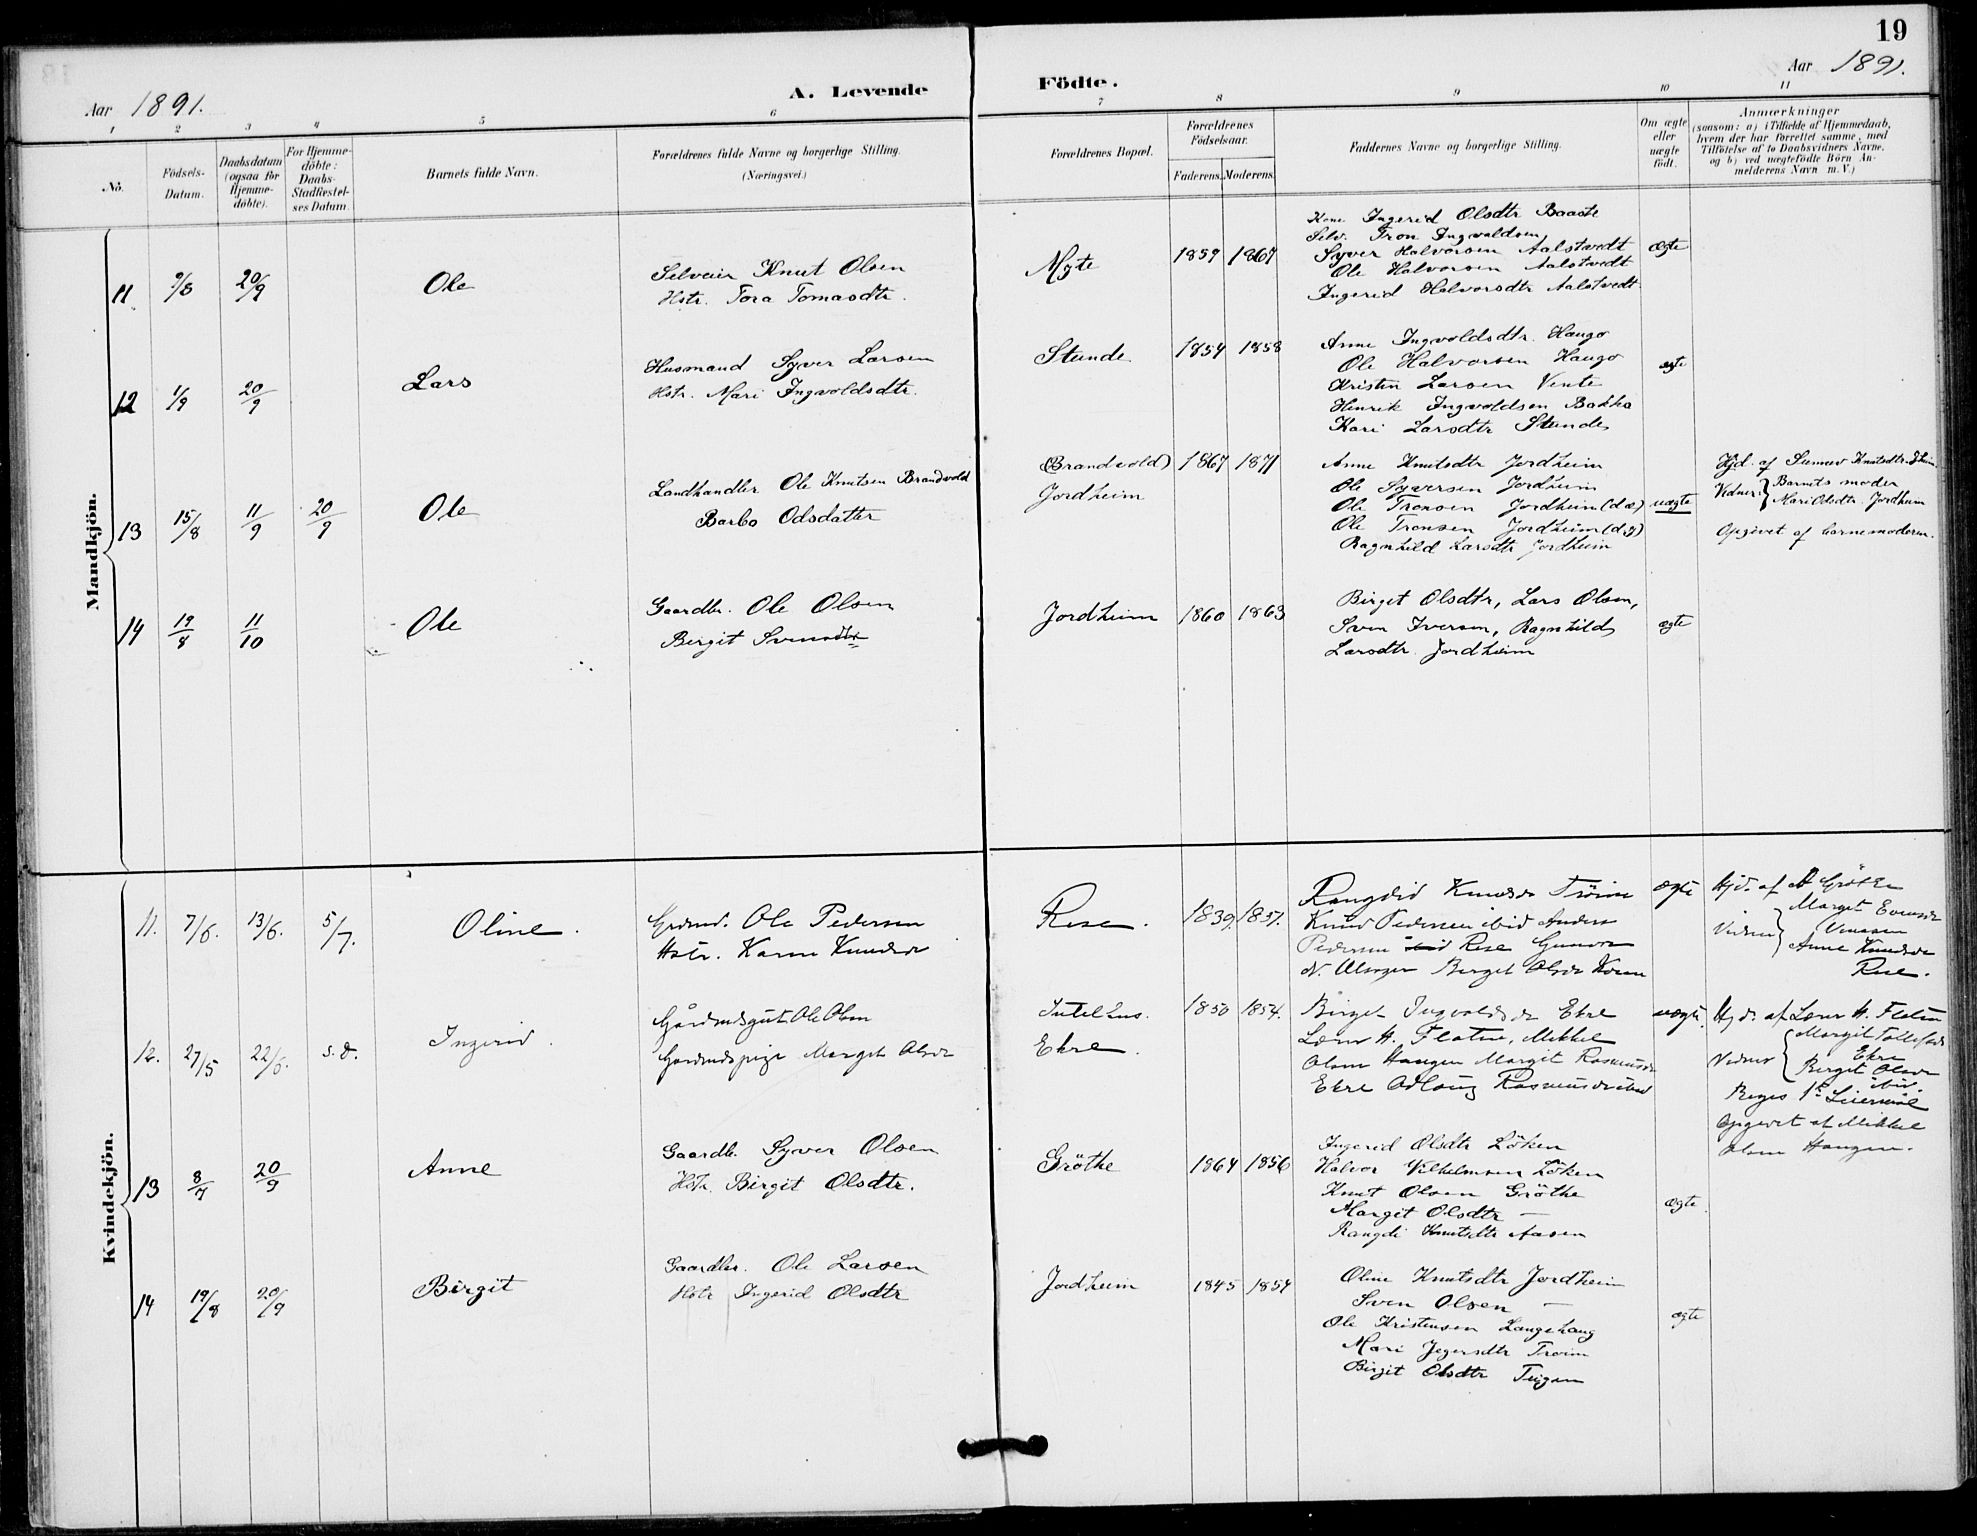 19
Aar 1891.
A. Levende
Födte.
Aar 1891.
1 2 3 4 5 6 7 8 9 10 11
Nô.
Födsels-
Datum.
Daabsdatum
(ogsaa for
Hjemme-
döbte).
For Hjemme-
döbte:
Daabs-
Stadfæstel-
ses Datum
Barnets fulde Navn.
Forældrenes fulde Navne og borgerlige Stilling.
(Næringsvei.)
Forældrenes Bopæl.
Forældrenes
Födselsaar.
Faderens. Moderens.
Faddernes Navne og borgerlige Stilling.
Om ægte
eller
uægte
födt.
Anmærkninger
(saasom: a) i Tilfælde af Hjemmedaab,
hvem der har forrettet samme, med
Tilföielse af to Daabsvidners Navne,
og b) ved uægtefödte Börn An-
melderens Navn m.V.)
Mandkjön.
11 9/8 20/9 Ole
Selveier Knut Olsen
Hstr. Tora Tomasdtr.
Myte 1859 1867
Kone Ingerid Olsdtr Baaste
Selv. Tron Ingvaldsen
Syver Halvorsen Aalstvedt
Ole Halvorsen Aalstvedt
Ingerid Halvorsdtr Aalstvedt
ægte
12 1/9 20/9 Lars
Husmand Syver Larsen
Hstr. Mari Ingvoldsdtr.
Stande 1854 1858
Anne Ingvoldsdtr. Haugo
Ole Halvorsen Haugo
Kristen Larsen Vente
Henrik Ingvoldsen Bakka
Kari Larsdtr Stande
ægte
13 15/8 11/9 20/9 Ole
Landhandler Ole Knutsen Brandvold
Barbo Odsdatter
(Brandvold)
Jordheim
1867 1871
Anne Knutsdtr Jordheim
Ole Syversen Jordheim
Ole Tronsen Jordheim (d.æ)
Ole Tronsen Jordheim (d.y)
Ragnhild Larsdtr Jordheim
uægte
Hjd. af Sunnev Knutsdtr. Jheim
Vidner: Barnets moder
Mari Olsdtr. Jordheim
Opgivet af barnemoderen.
14 19/8 11/10 Ole
Gaardbr. Ole Olsen
Birgit Svensdtr
Jordheim 1860 1863
Birgit Olsdtr, Lars Olsen,
Sven Iversen, Ragnhild
Larsdtr. Jordheim
ægte
Kvindekjön.
11. 7/6. 13/6. 5/7. Oline.
Grdmd. Ole Pedersen
Hstr. Karen Knudsdr
Rese. 1839. 1857.
Rangdid Knudsdr Tröim
Knud Pedersen ibid Anders
Pedersen Rese Gunvor
Birget Olsdr
ægte
Hjd. af Gröthe
Vidner Marget Evensdr
Anne Knudsdr
Rese.
12. 27/5 22/6. s. d. Ingerid.
Gårdmdsgut Ole Olsen
Gårdmdspige Marget Olsdr
Ekre. 1850 1854.
Birget Ingvaldsdr Ekre
H. Flaten, Mikkel
Olsen Haugen Margit Rasmusdr
Ekre Rasmusdr ibid
uægte.
Hjd. af H. Flaten
Vidner Margit Tollefsdr
Ekre
Birgit Olsdr
ibid.
Beges 1st Leiermål
Opgivet af Mikkel
Olsen Haugen.
13 8/7 20/9 Anne
Gaardb. Syver Olsen
Hstr. Birgit Olsdtr.
Gröthe 1864 1856
Ingerid Olsdtr Löken
Halvor Vilhelmsen Löken
Knut Olsen Gröthe
Margit Olsdtr —
Rangdi Knutsdtr Aasen
ægte
14 19/8 20/9 Birgit
Gaardbr. Ole Larsen
Hstr Ingerid Olsdtr
Jordheim 1845 1854
Oline Knutsdtr Jordheim
Sven Olsen —
Ole Kristensen Langehaug
Mari Jegersdtr Troim
Birgit Olsdtr
ægte